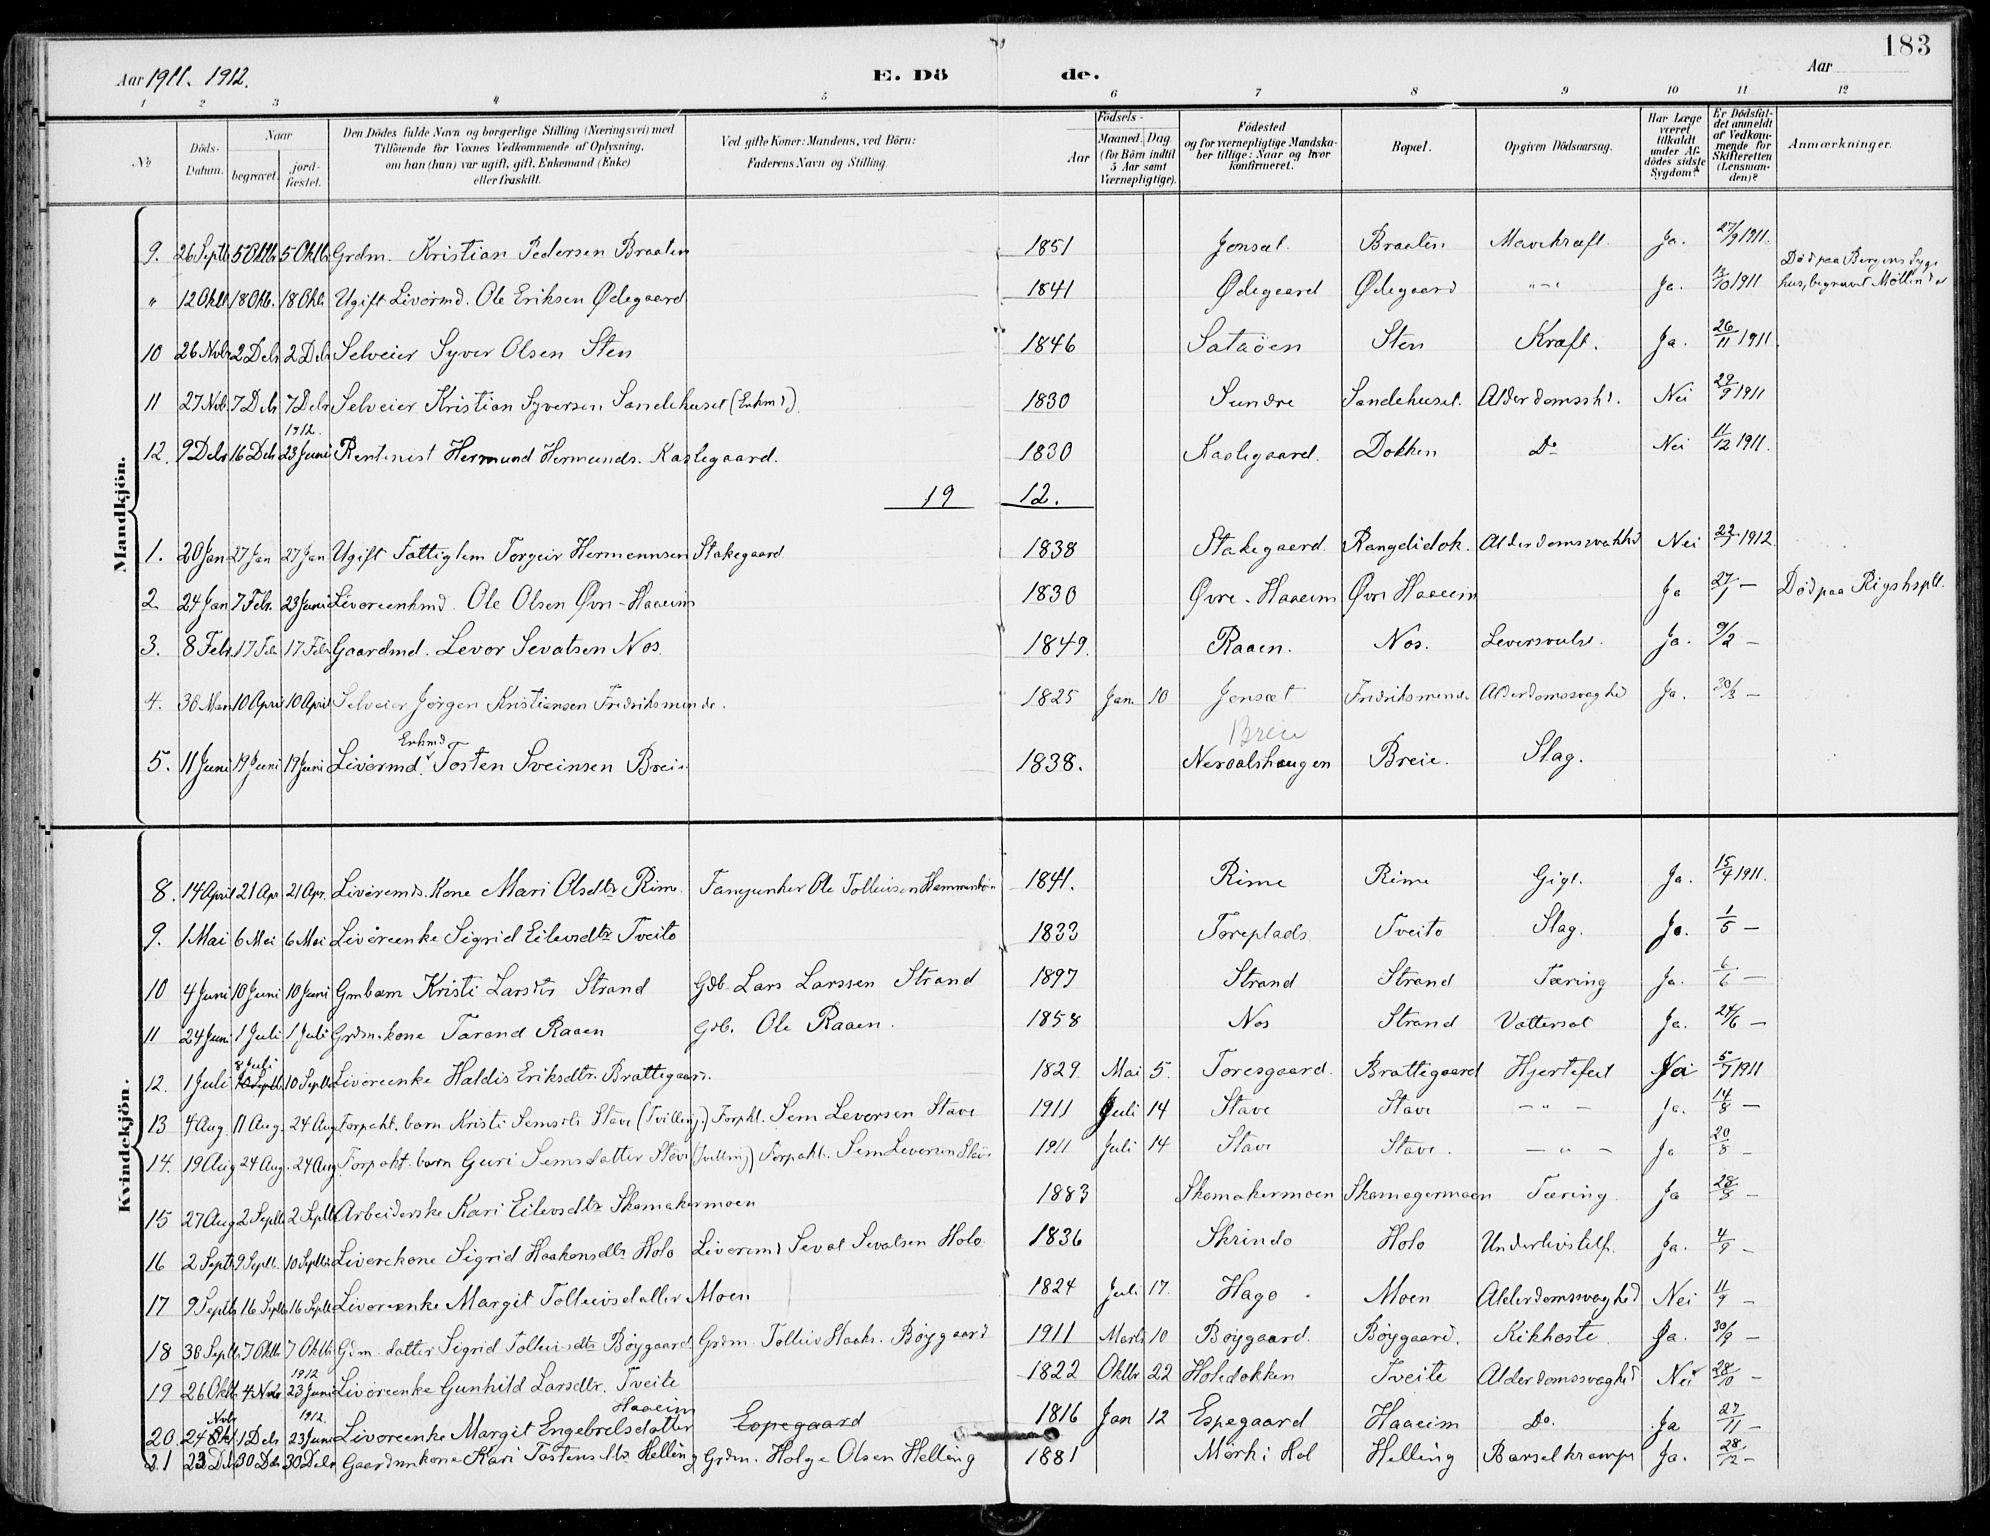 183
Aar 1911. 1912. E. Dö de. Aar
1 2 3 4 5 6 7 8 9 10 11 12
№ Döds-Datum. Naar begravet. jord-fæstet. Den Dödes fulde Navn og borgerlige Stilling (Næringsvei) med Tilföiende for Voxnes Vedkommende af Oplysning, om han (hun) var ugift, gift, Enkemand (Enke) eller fraskilt. Ved gifte Koner: Mandens, ved Börn: Faderens Navn og Stilling. Födsels- Aar Maaned. Dag (for Börn indtil 5 Aar samt Værnepligtige). Födested og for værnepligtige Mandskaber tillige: Naar og hvor konfirmeret. Bopæl. Opgiven Dödsaarsag. Har Læge været tilkaldt under Afdödes sidste Sygdom? Er Dödsfaldet anmeldt af Vedkommende for Skifteretten (Lensmanden)? Anmærkninger.
Mandkjön.
9. 26 Septb 5 Oktb 5 Oktb Grdm. Kristian Pedersen Braaten 1851 Jonsæt Braaten Mavekræft. Ja. 27/9 1911.
" 12 Oktb 18 Okb. 18 Okb. Ugift Livörmd. Ole Eriksen Ødegaard 1841 Ødegaard Ødegaard "-" Ja. 1911 Död paa Bergens Sygehus, begravet Möllendal
10 26 Nvbr 2 Dcbr 2 Dcbr Selveier Syver Olsen Sten 1846 Sataöen Sten Kræft. Ja. 26/11 1911.
11 27 Nvb. 7 Dcbr 7 Dcbr Selveier Kristian Syversen Sandehuset (Enkmd). 1830 Sundre Sandehuset. Alderdomssh. Nei 29/9 1911
12. 9 Dcbr 16 Dcb 1912. 23 Juni Rentenist Hermund Hermunds. Kaslegaard. 1830 Kaslegaard. Dokken Do Nei 11/12 1911.
19 12.
1. 20 Jan 27 Jan 27 Jan Ugift Fattiglem Torgeir Hermennsen Stakegaard 1838 Stakegaard. Rangdidok. Alderdomssvakhd Nei 22/1 1912.
2 24 Jan 7 Febr. 23 Juni Livöreenkmd. Ole Olsen Øvre-Haaeim 1830 Øvre-Haaeim Øvre Haaeim Ja 27/1 — Död paa Rigshsptl.
3. 8 Febr. 17 Febr 17 Febr Gaardmd. Levor Sevatsen Nos. 1849. Raaen. Nos. Leversvulst. Ja. 9/2 —
4. 30 Mars 10 April 10 April Selveier Jörgen Kristiansen Fredriksminde. 1825 Jan. 10 Jonsæt Fredriksminde Alderdomssvaghed Ja. 30/3 —
5. 11 Juni 19 Juni 19 Juni Livörmd. Enkmd Tosten Sveinsen Breie 1838. Breie Neraalshaugen Breie. Slag.
Kvindekjön.
8. 14 April 21 Apr. 21 Apr. Livöremds. Kone Mari Olsdtr Rime. Fanejunker Ole Tolleivsen Hammersbön 1841. Rime Rime Gigt. Ja. 15/4 1911.
9. 1 Mai 6 Mai 6 Mai Livöreenke Sigrid Eilevsdtr Tveito 1833 Toreplads Tveito Slag. Ja. 1/5 —
10 4 Juni 10 Juni 10 Juni Gmbarn Kristi Larsdtr Strand Gdb. Lars Larssen Strand 1897 Strand Strand Tæring Ja. 6/6 —
11 24 Juni 1 Juli 1 Juli Grdm.kone Tarand Raaen Gdb. Ole Raaen. 1858 Nos Strand Vattersot Ja. 24/6 —
12. 1 Juli 8 Juli 10 Septb. 10 Septb Livöreenke Haldis Eriksdtr. Brattegaard. 1829. Mai 5. Toresgaard. Brattegaard Hjertefeil Ja 5/7 1911
13 4 Aug. 11 Aug. 24 Aug Forpakt. barn Kristi Semsdtr Stave (Tvilling.) Forpkt. Sem Leversen Stave 1911 Juli 14 Stave Stave — " — Ja. 14/8 —
14. 19 Aug 24 Aug. 24 Aug Forpakt. barn Guri Semsdatter Stave (Tvilling) Forpakt. Sem Leversen Stave 1911 Juli 14 Stave Stave. — " — Ja 20/8 —
15 27 Aug 2 Septb 2 Septb Arbeiderske Kari Eilevsdtr Skomakermoen 1883 Skomakermoen Skomagermoen Tæring. Ja 28/8 —
16 2 Septb 9 Septb. 10 Septb Livörekone Sigrid Haakonsdtr. Holo Livöremd Sevat Sevatsen Holo. 1836 Skrindo Holo Underlivstilf. Ja. 4/9 —
17 9 Septb 16 Septb 16 Septb Livöreenke Margit Tolleivsdatter Moen 1824 Juli 17. Hago Moen Alderdomssvaghed Nei 11/9 —
18 30 Septb 7 Oktb 7 Oktb Gdm. datter Sigrid Tolleivsdtr Böygaard Grdm. Tolleiv Haak. Böygaard 1911 Marts 10 Böygaard. Böygaard. Kikhoste Ja. 30/9 —
19 26 Oktb. 4 Nvbr 1912 23 Juni Livöreenke Gunhild Larsdtr. Tveite 1822 Oktbr 22 Holedokken Tveite Alderdomssvaghed Nei 28/10 —
20. 24 Okt. Nvbr 1 Dcbr 1912. 23 Juni Livöreenke Margit Engebretsdatter Haaeim Espegaard 1816 Jan 12 Espegaard Haaeim Do. Ja 27/11 —
21 23 Dcbr 30 Dcbr 30 Dcbr Gaardmkone Kari Tostensdtr Helling Grdm. Holge Olsen Helling 1881 Mörk i Hol Helling Barselkrampe Ja. 28/12 —